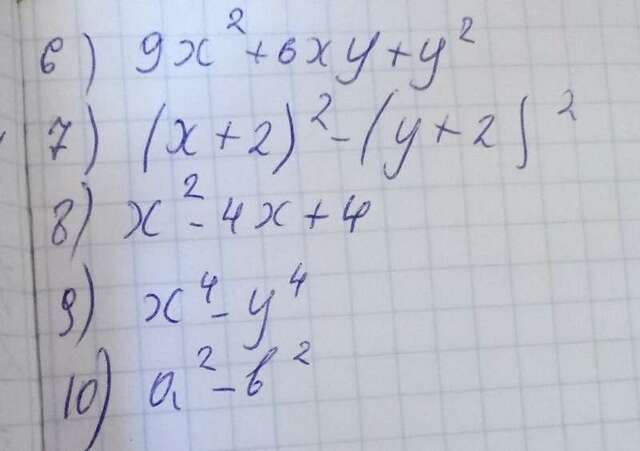 6) 9x² + 6xy + y²
7) (x + 2)² - (y + 2)²
8) x² - 4x + 4
9) x⁴ - y⁴
10) a² - b²